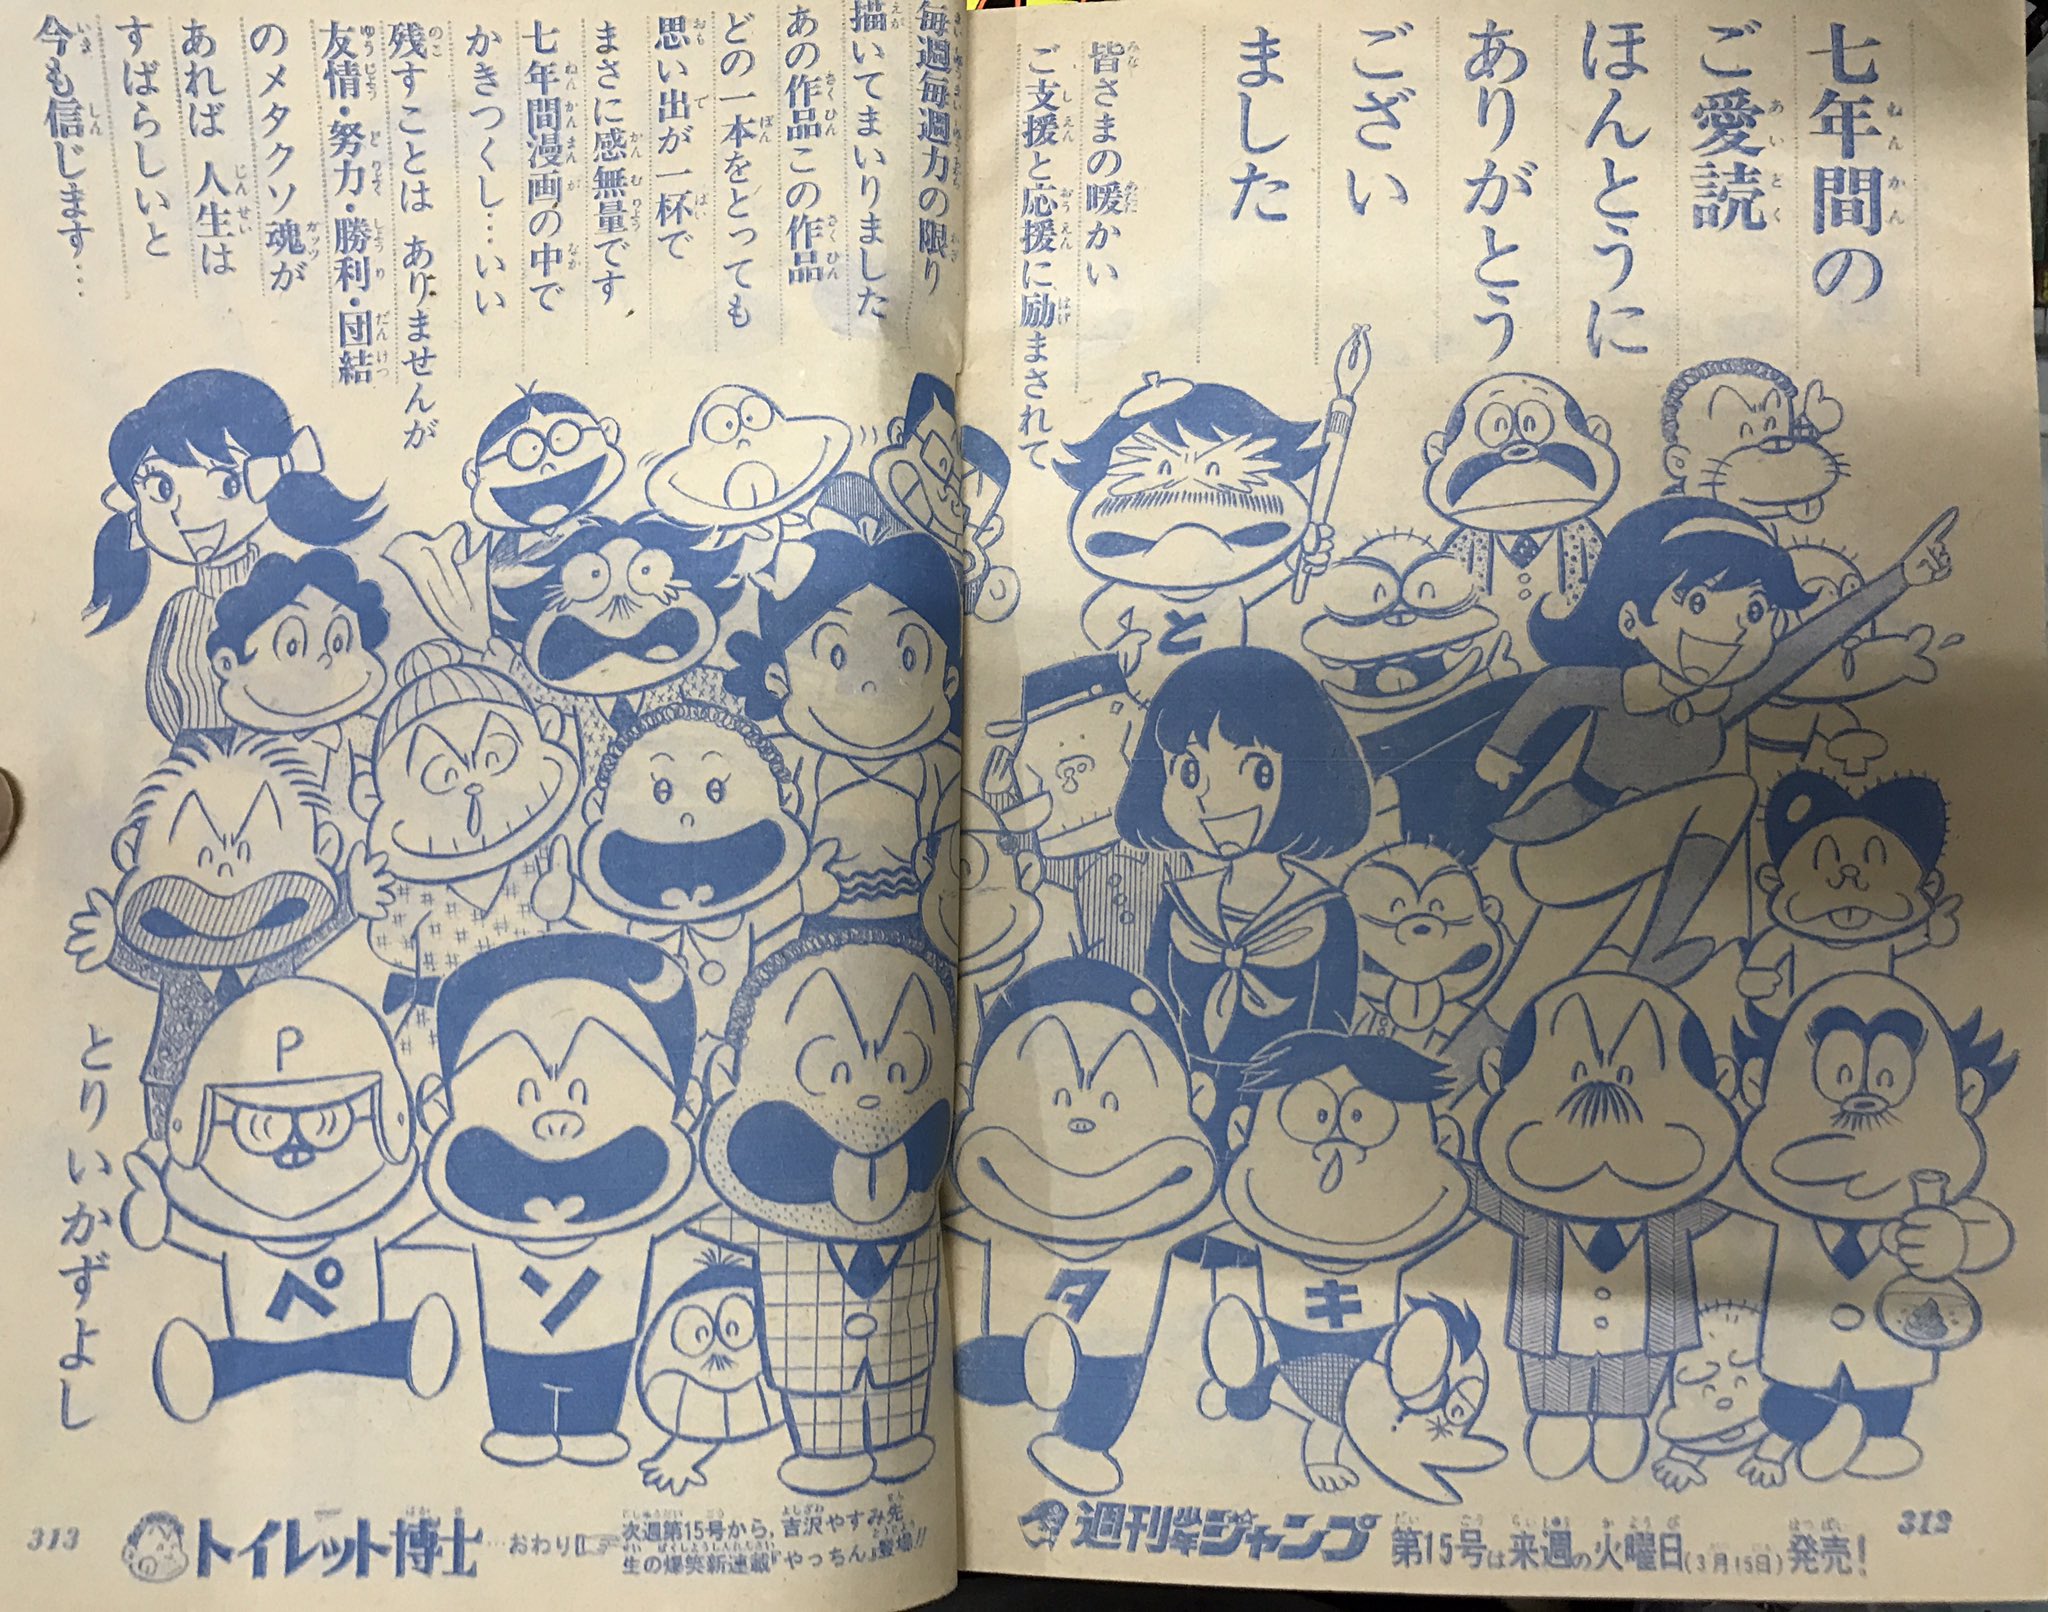 七年間の
ご愛読
ほんとうに
ありがとう
ござい
ました
皆さまの暖かい
ご支援と応援に励まされて
毎週毎週力の限り
描いてまいりました
あの作品この作品
どの一本をとっても
思い出が一杯で
まさに感無量です
七年間漫画の中で
かきつくし…いい
残すことは ありませんが
友情・努力・勝利・団結
のメタクソ魂が
あれば 人生は
すばらしいと
今も信じます…
とりいかずよし
と
P
ペ
ソ
タ
キ
312
週刊少年ジャンプ 第15号は来週の火曜日(3月15日)発売!
313
トイレット博士…おわり
次週第15号から,吉沢やすみ先
生の爆笑新連載『やっちん』登場!!